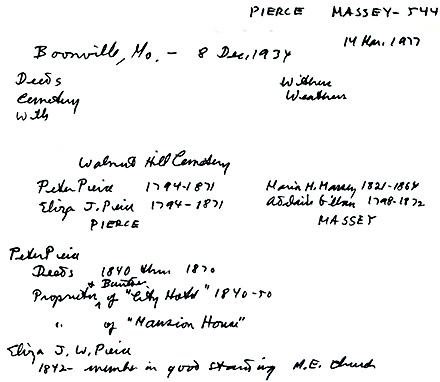 PIERCE MASSEY - 544
14 Mar. 1977
Boonville, Mo. - 8 Dec, 1934
Deeds
Cemetery
Wills
Withers
Weathers
Walnut Hill Cemetery
Peter Pierce 1794-1871
Eliza J. Pierce 1794-1871
PIERCE
Maria H. Massey 1821-1864
Adelaide 1798-1872
MASSEY
Peter Pierce
Deeds 1840 thru 1870
Proprietor + Banker of "City Hotel" 1840-50
" of "Mansion House"
Eliza J. W. Pierce
1842- member in good standing M.E. Church